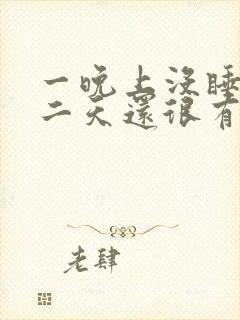 一晚上没睡
二天還很有
老肆